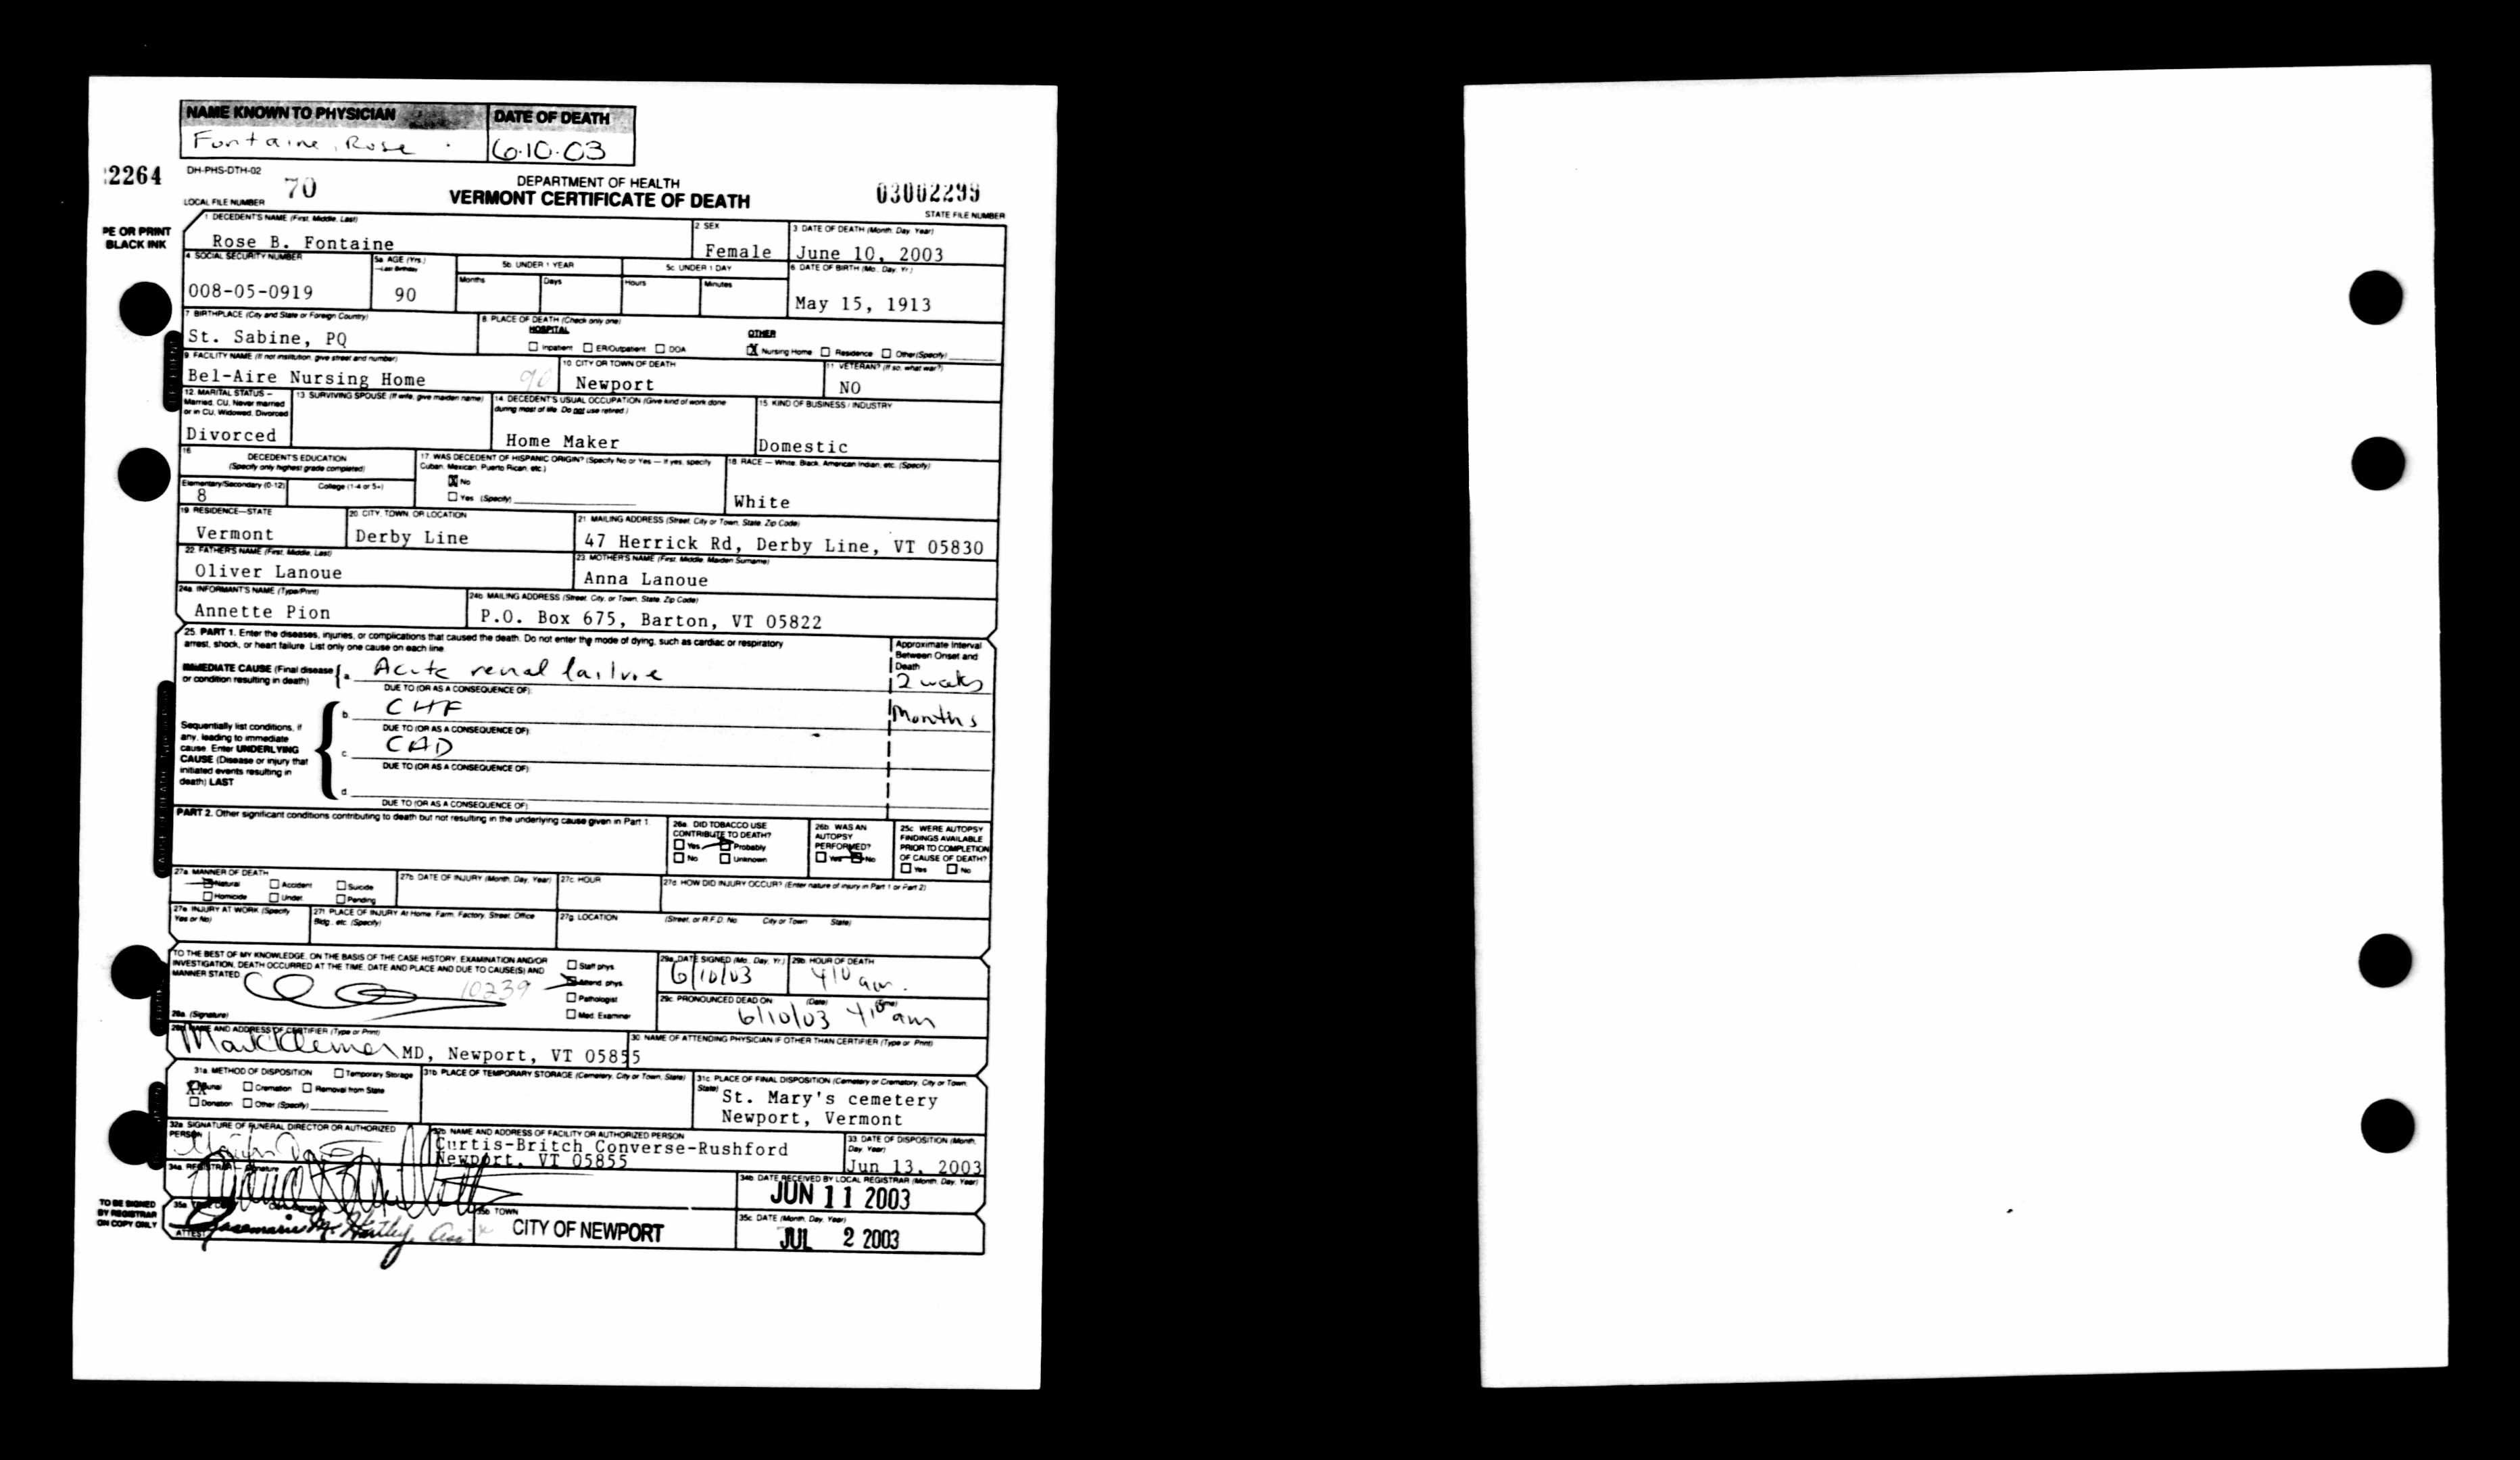 NAME KNOWN TO PHYSICIAN
DATE OF DEATH
Fontaine, Rose
6.10.03
2264
DH-PHS-DTH-02
70
DEPARTMENT OF HEALTH
VERMONT CERTIFICATE OF DEATH
LOCAL FILE NUMBER
STATE FILE NUMBER
PE OR PRINT
BLACK INK
1 DECEDENT'S NAME (First, Middle, Last)
Rose B. Fontaine
2 SEX
Female
3 DATE OF DEATH (Month, Day, Year)
June 10, 2003
4 SOCIAL SECURITY NUMBER
008-05-0919
5a AGE (Yrs.)
—Last Birthday
90
5b. UNDER 1 YEAR
Months
Days
5c. UNDER 1 DAY
Hours
Minutes
6 DATE OF BIRTH (Mo., Day, Yr.)
May 15, 1913
7 BIRTHPLACE (City and State or Foreign Country)
St. Sabine, PQ
8. PLACE OF DEATH (Check only one)
HOSPITAL
Inpatient
ER/Outpatient
DOA
OTHER
X Nursing Home
Residence
Other (Specify)
9. FACILITY NAME (If not institution, give street and number)
Bel-Aire Nursing Home
90
10. CITY OR TOWN OF DEATH
Newport
11 VETERAN? (If so, what war?)
NO
12. MARITAL STATUS —
Married, CU, Never married
or in CU, Widowed, Divorced
Divorced
13. SURVIVING SPOUSE (If wife, give maiden name)
14. DECEDENT'S USUAL OCCUPATION (Give kind of work done
during most of life. Do not use retired.)
Home Maker
15. KIND OF BUSINESS / INDUSTRY
Domestic
16
DECEDENT'S EDUCATION
(Specify only highest grade completed)
Elementary/Secondary (0-12)
8
College (1-4 or 5+)
17. WAS DECEDENT OF HISPANIC ORIGIN? (Specify No or Yes — If yes, specify
Cuban, Mexican, Puerto Rican, etc.)
X No
Yes (Specify)
18. RACE — White, Black, American Indian, etc. (Specify)
White
19. RESIDENCE—STATE
Vermont
20. CITY, TOWN, OR LOCATION
Derby Line
21. MAILING ADDRESS (Street, City or Town, State, Zip Code)
47 Herrick Rd, Derby Line, VT 05830
22. FATHER'S NAME (First, Middle, Last)
Oliver Lanoue
23. MOTHER'S NAME (First, Middle, Maiden Surname)
Anna Lanoue
24a. INFORMANT'S NAME (Type/Print)
Annette Pion
24b. MAILING ADDRESS (Street, City, or Town, State, Zip Code)
P.O. Box 675, Barton, VT 05822
25. PART 1. Enter the diseases, injuries, or complications that caused the death. Do not enter the mode of dying, such as cardiac or respiratory
arrest, shock, or heart failure. List only one cause on each line.
Approximate Interval
Between Onset and
Death
IMMEDIATE CAUSE (Final disease
or condition resulting in death)
a. Acute renal failure
2 weeks
DUE TO (OR AS A CONSEQUENCE OF):
b. CHF
Months
DUE TO (OR AS A CONSEQUENCE OF):
c. CAD
DUE TO (OR AS A CONSEQUENCE OF):
d.
DUE TO (OR AS A CONSEQUENCE OF):
Sequentially list conditions, if
any, leading to immediate
cause. Enter UNDERLYING
CAUSE (Disease or injury that
initiated events resulting in
death) LAST
PART 2. Other significant conditions contributing to death but not resulting in the underlying cause given in Part 1.
26a. DID TOBACCO USE
CONTRIBUTE TO DEATH?
Yes
Probably
No
Unknown
26b. WAS AN
AUTOPSY
PERFORMED?
Yes
No
25c. WERE AUTOPSY
FINDINGS AVAILABLE
PRIOR TO COMPLETION
OF CAUSE OF DEATH?
Yes
No
27a. MANNER OF DEATH
Natural
Accident
Suicide
Homicide
Undet.
Pending
27b. DATE OF INJURY (Month, Day, Year)
27c. HOUR
27d. HOW DID INJURY OCCUR? (Enter nature of injury in Part 1 or Part 2)
27e. INJURY AT WORK (Specify
Yes or No)
27f. PLACE OF INJURY At Home, Farm, Factory, Street, Office
Bldg., etc. (Specify)
27g. LOCATION
(Street, or R.F.D. No.
City or Town
State)
TO THE BEST OF MY KNOWLEDGE, ON THE BASIS OF THE CASE HISTORY, EXAMINATION AND/OR
INVESTIGATION, DEATH OCCURRED AT THE TIME, DATE AND PLACE AND DUE TO CAUSE(S) AND
MANNER STATED
10239
28a. (Signature)
Staff phys.
Attend. phys.
Pathologist
Med. Examiner
29a. DATE SIGNED (Mo., Day, Yr.)
6/10/03
29b. HOUR OF DEATH
410 am.
29c. PRONOUNCED DEAD ON
(Date)
(Time)
6/10/03 410 am
28b. NAME AND ADDRESS OF CERTIFIER (Type or Print)
MD, Newport, VT 05855
30. NAME OF ATTENDING PHYSICIAN IF OTHER THAN CERTIFIER (Type or Print)
31a. METHOD OF DISPOSITION
Temporary Storage
XX Burial
Cremation
Removal from State
Donation
Other (Specify)
31b. PLACE OF TEMPORARY STORAGE (Cemetery, City or Town, State)
31c. PLACE OF FINAL DISPOSITION (Cemetery or Crematory, City or Town,
State)
St. Mary's cemetery
Newport, Vermont
32a. SIGNATURE OF FUNERAL DIRECTOR OR AUTHORIZED
PERSON
32b. NAME AND ADDRESS OF FACILITY OR AUTHORIZED PERSON
Curtis-Britch Converse-Rushford
Newport, VT 05855
33. DATE OF DISPOSITION (Month,
Day, Year)
Jun 13, 2003
34a. REGISTRAR — Signature
34b. DATE RECEIVED BY LOCAL REGISTRAR (Month, Day, Year)
JUN 11 2003
TO BE SIGNED
BY REGISTRAR
ON COPY ONLY
35a.
ATTEST
35b. TOWN
CITY OF NEWPORT
35c. DATE (Month, Day, Year)
JUL 2 2003